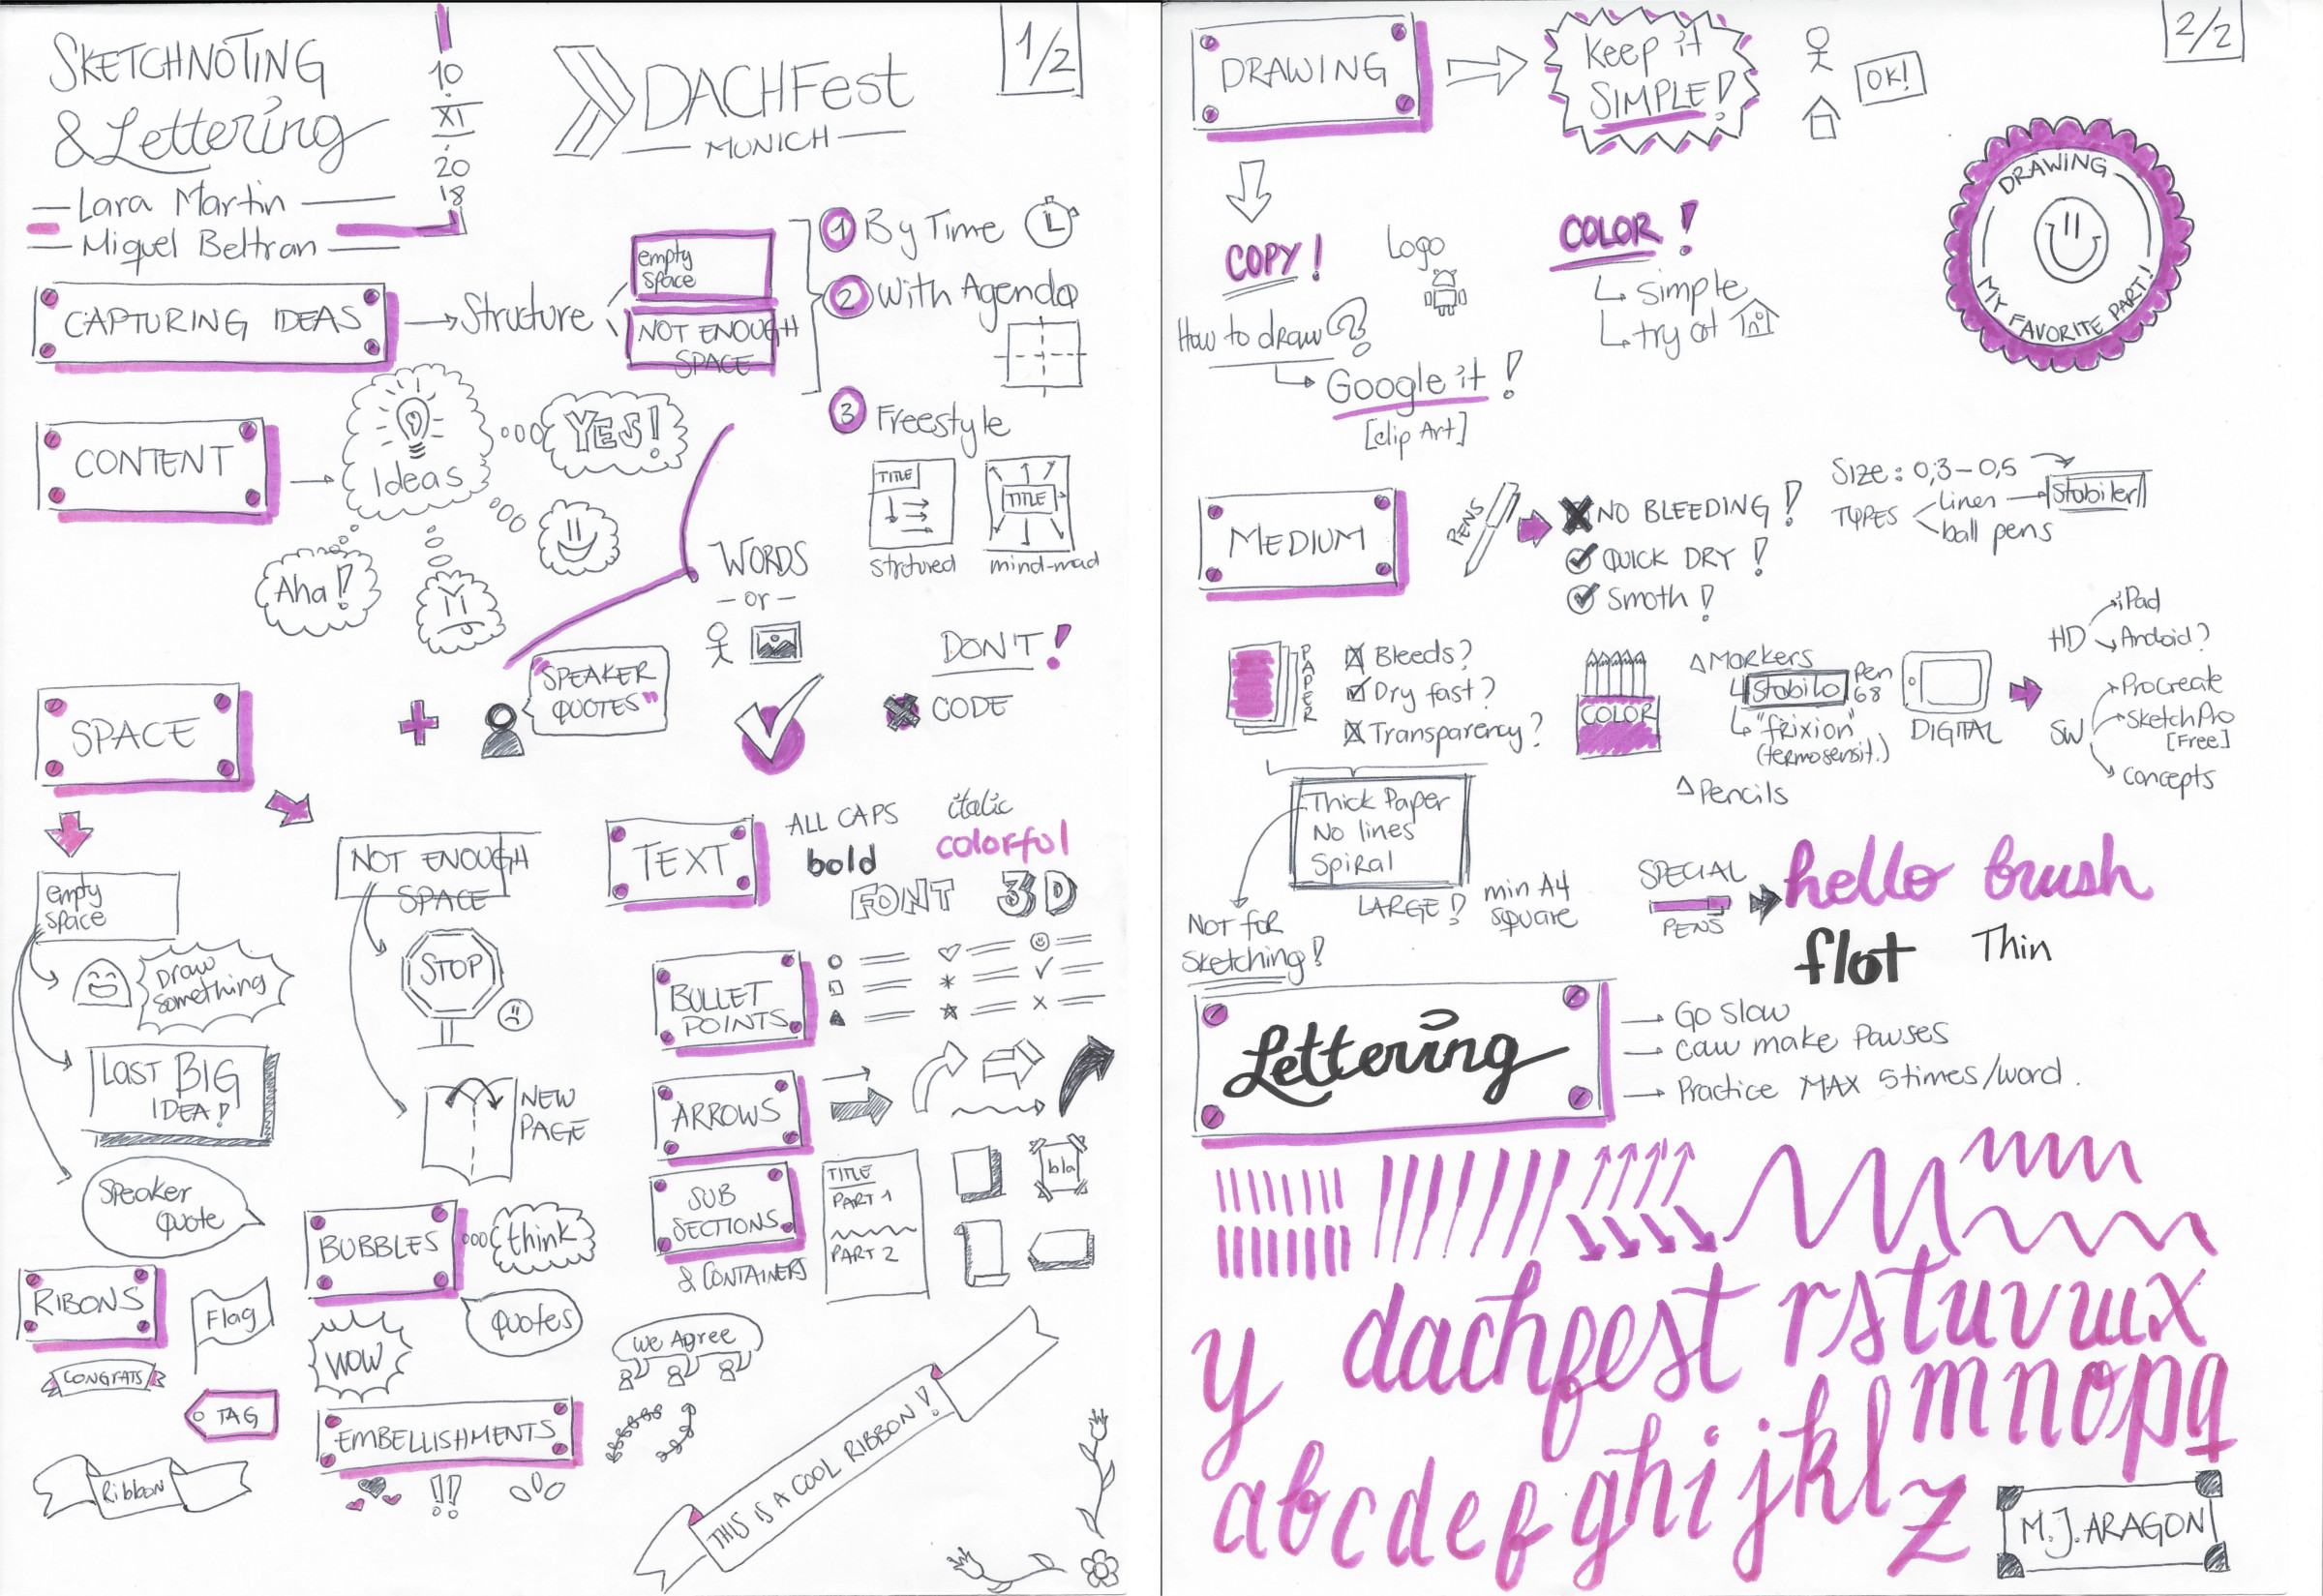 SKETCHNOTING
& Lettering
Lara Martin
Miguel Beltran
10
XI
20
18
DACHFest
MUNICH
1/2
CAPTURING IDEAS
Structure
empty
space
NOT ENOUGH
SPACE
1 By Time
2 With Agenda
3 Freestyle
TITLE
strctured
TITLE
mind-mad
CONTENT
Ideas
YES!
Aha!
WORDS
- or -
"SPEAKER
QUOTES"
DON'T!
CODE
SPACE
empty
space
Draw
something
LAST BIG
IDEA!
Speaker
Quote
NOT ENOUGH
SPACE
STOP
NEW
PAGE
TEXT
ALL CAPS
italic
bold
colorful
FONT
3D
BULLET
POINTS
ARROWS
SUB
SECTIONS
& CONTAINERS
TITLE
PART 1
PART 2
bla
BUBBLES
think
Quotes
WOW
We Agree
RIBONS
Flag
CONGRATS
TAG
Ribbon
EMBELLISHMENTS
!!
THIS IS A COOL RIBBON!
2/2
DRAWING
Keep it
SIMPLE!
OK!
DRAWING
MY FAVORITE PART!
COPY!
How to draw?
Google it!
[clip Art]
Logo
COLOR!
simple
try at
MEDIUM
PENS
NO BLEEDING!
QUICK DRY!
Smoth!
Size: 0,3-0,5
TYPES
Linen
ball pens
Stabiler
PAPER
Bleeds?
Dry fast?
Transparency?
Thick Paper
No lines
Spiral
LARGE!
min A4
square
NOT for
sketching!
COLOR
Markers
Stabilo
Pen
68
"frixion"
(termosensit.)
Pencils
DIGITAL
HD
iPad
Android?
SW
Procreate
SketchPro
[Free]
Concepts
SPECIAL
PENS
hello brush
flat
Thin
Lettering
Go slow
caw make pauses
Practice MAX 5times/word.
dachfest
rstuvwx
y
mnopq
abcdefghijkl
z
M.J.ARAGON